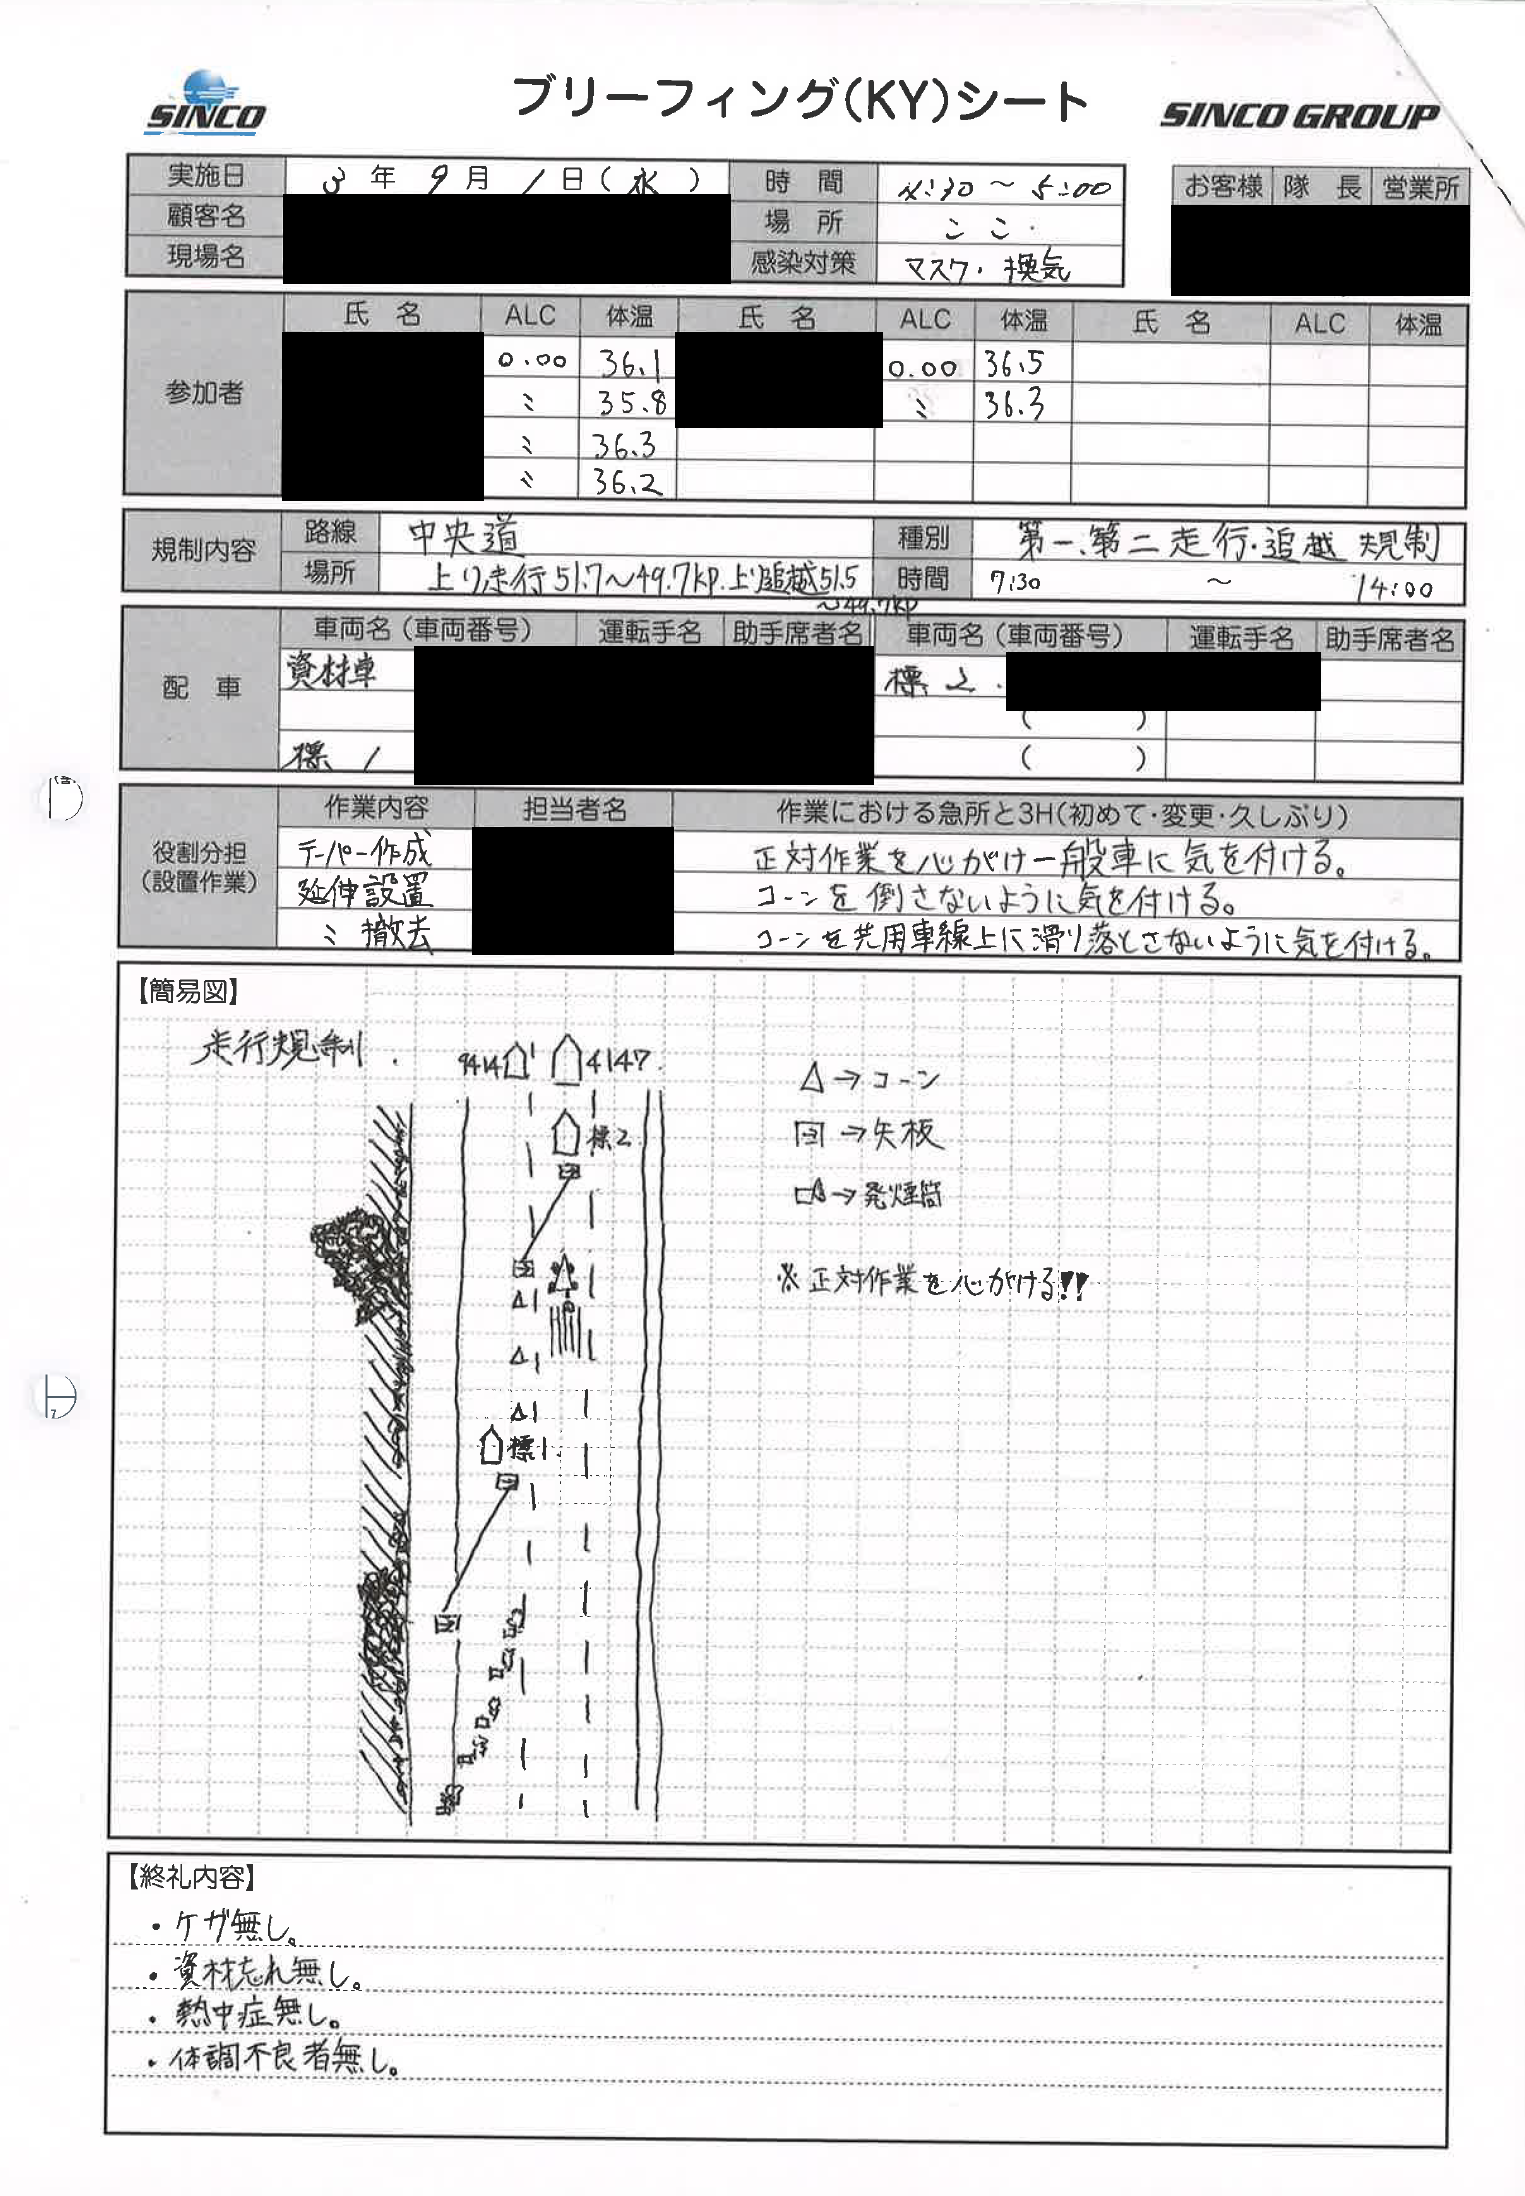 SINCO
ブリーフィング(KY)シート
SINCO GROUP
実施日 3年 9月 1日(水) 時間 4:30 ~ 5:00 お客様 隊長 営業所
顧客名 場所 ここ.
現場名 感染対策 マスク・換気
氏名 ALC 体温 氏名 ALC 体温 氏名 ALC 体温
参加者
0.00 36.1 0.00 36.5
〃 35.8 〃 36.3
〃 36.3
〃 36.2
規制内容
路線 中央道 種別 第一、第二走行・追越 規制
場所 上り走行51.7~49.7kp.上り追越51.5 時間 7:30 ~ 14:00
~49.7kp
配車
車両名(車両番号) 運転手名 助手席者名 車両名(車両番号) 運転手名 助手席者名
資材車 標2.
( )
標1 ( )
役割分担
(設置作業)
作業内容 担当者名 作業における急所と3H(初めて・変更・久しぶり)
テーパー作成 正対作業を心がけ一般車に気を付ける。
延伸設置 コーンを倒さないように気を付ける。
〃 撤去 コーンを共用車線上に滑り落とさないように気を付ける。
【簡易図】
走行規制.
9414 4147.
△→コーン
標2
→矢板
→発煙筒
※正対作業を心がける!!
標1.
【終礼内容】
・ケガ無し。
・資材忘れ無し。
・熱中症無し。
・体調不良者無し。